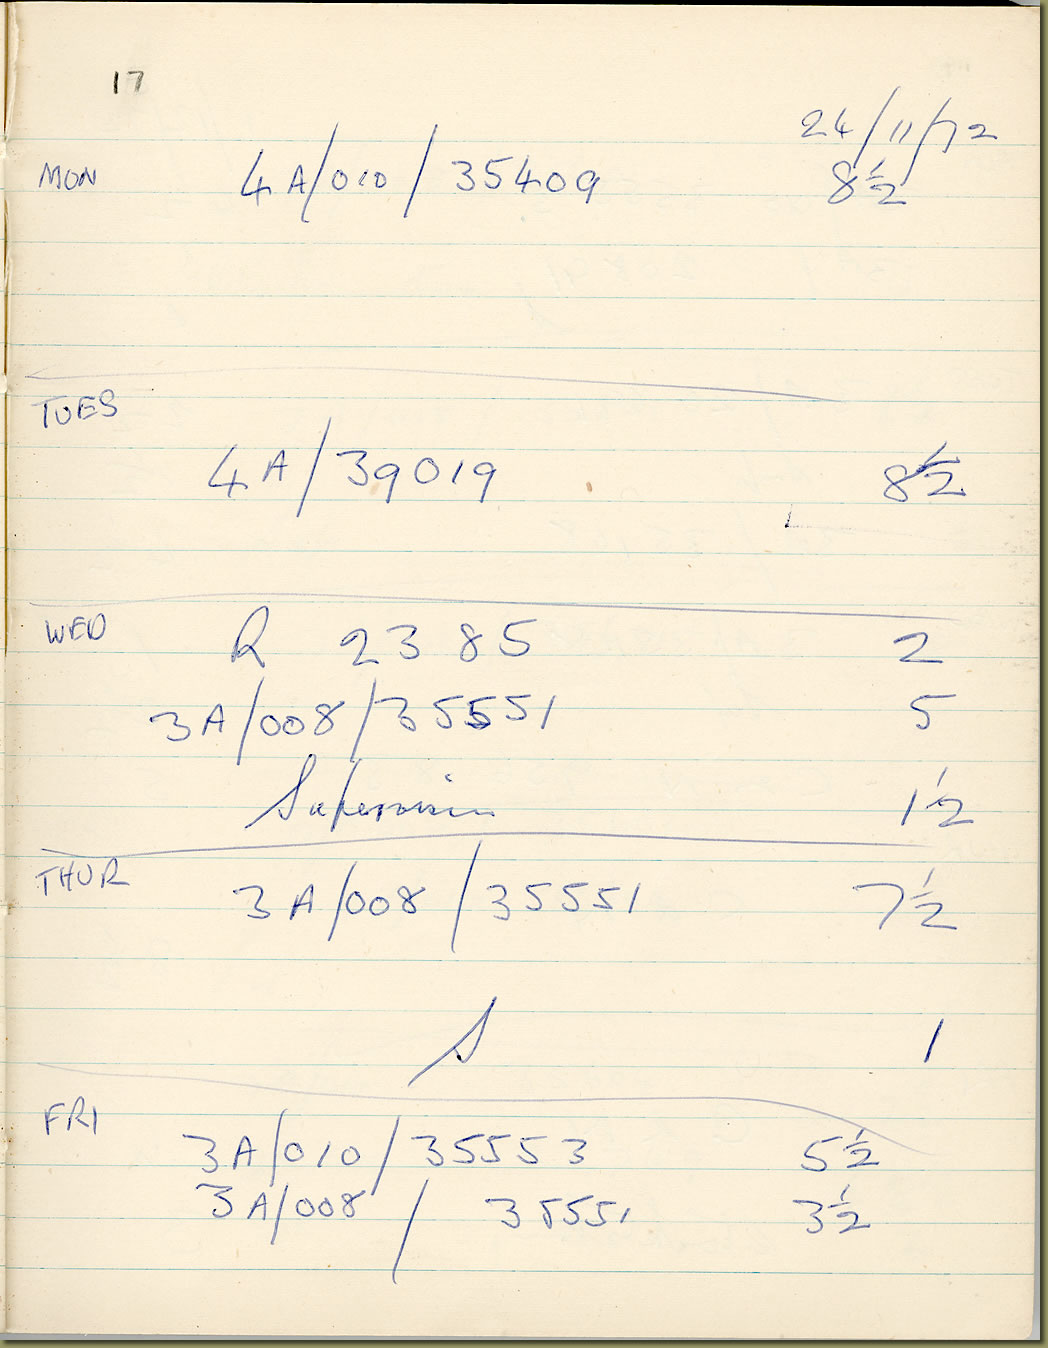 17
24/11/72
MON 4A/010/35409 8½
TUES
4A/39019 8½
WED R 2385 2
3A/008/35551 5
Supervision 1½
THUR 3A/008/35551 7½
S 1
FRI
3A/010/35553 5½
3A/008/35551 3½